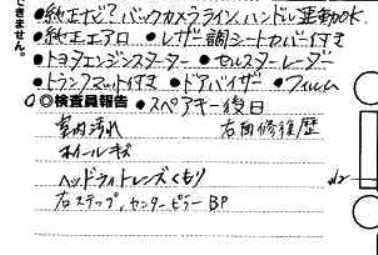 できません。
●純正ナビ?バックカメラライン、ハンドル連動OK.
●純正エアロ ●レザー調シートカバー付き
●トヨタエンジンスターター ●セルスターレーダー
●トランクマット付き ●ドアバイザー ●フィルム
◎検査員報告 ●スペアキー後日
室内汚れ 右面修復歴
ホイールキズ
ヘッドライトレンズくもり
右ステップ、センターピラー BP